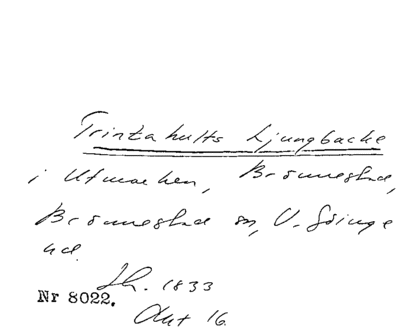 Trintahults Ljungbacke
i Utmarken, Brönnestad,
Brönnestad sn, V. Göinge
hd.
Lh. 1833
Nr 8022.
Akt 16